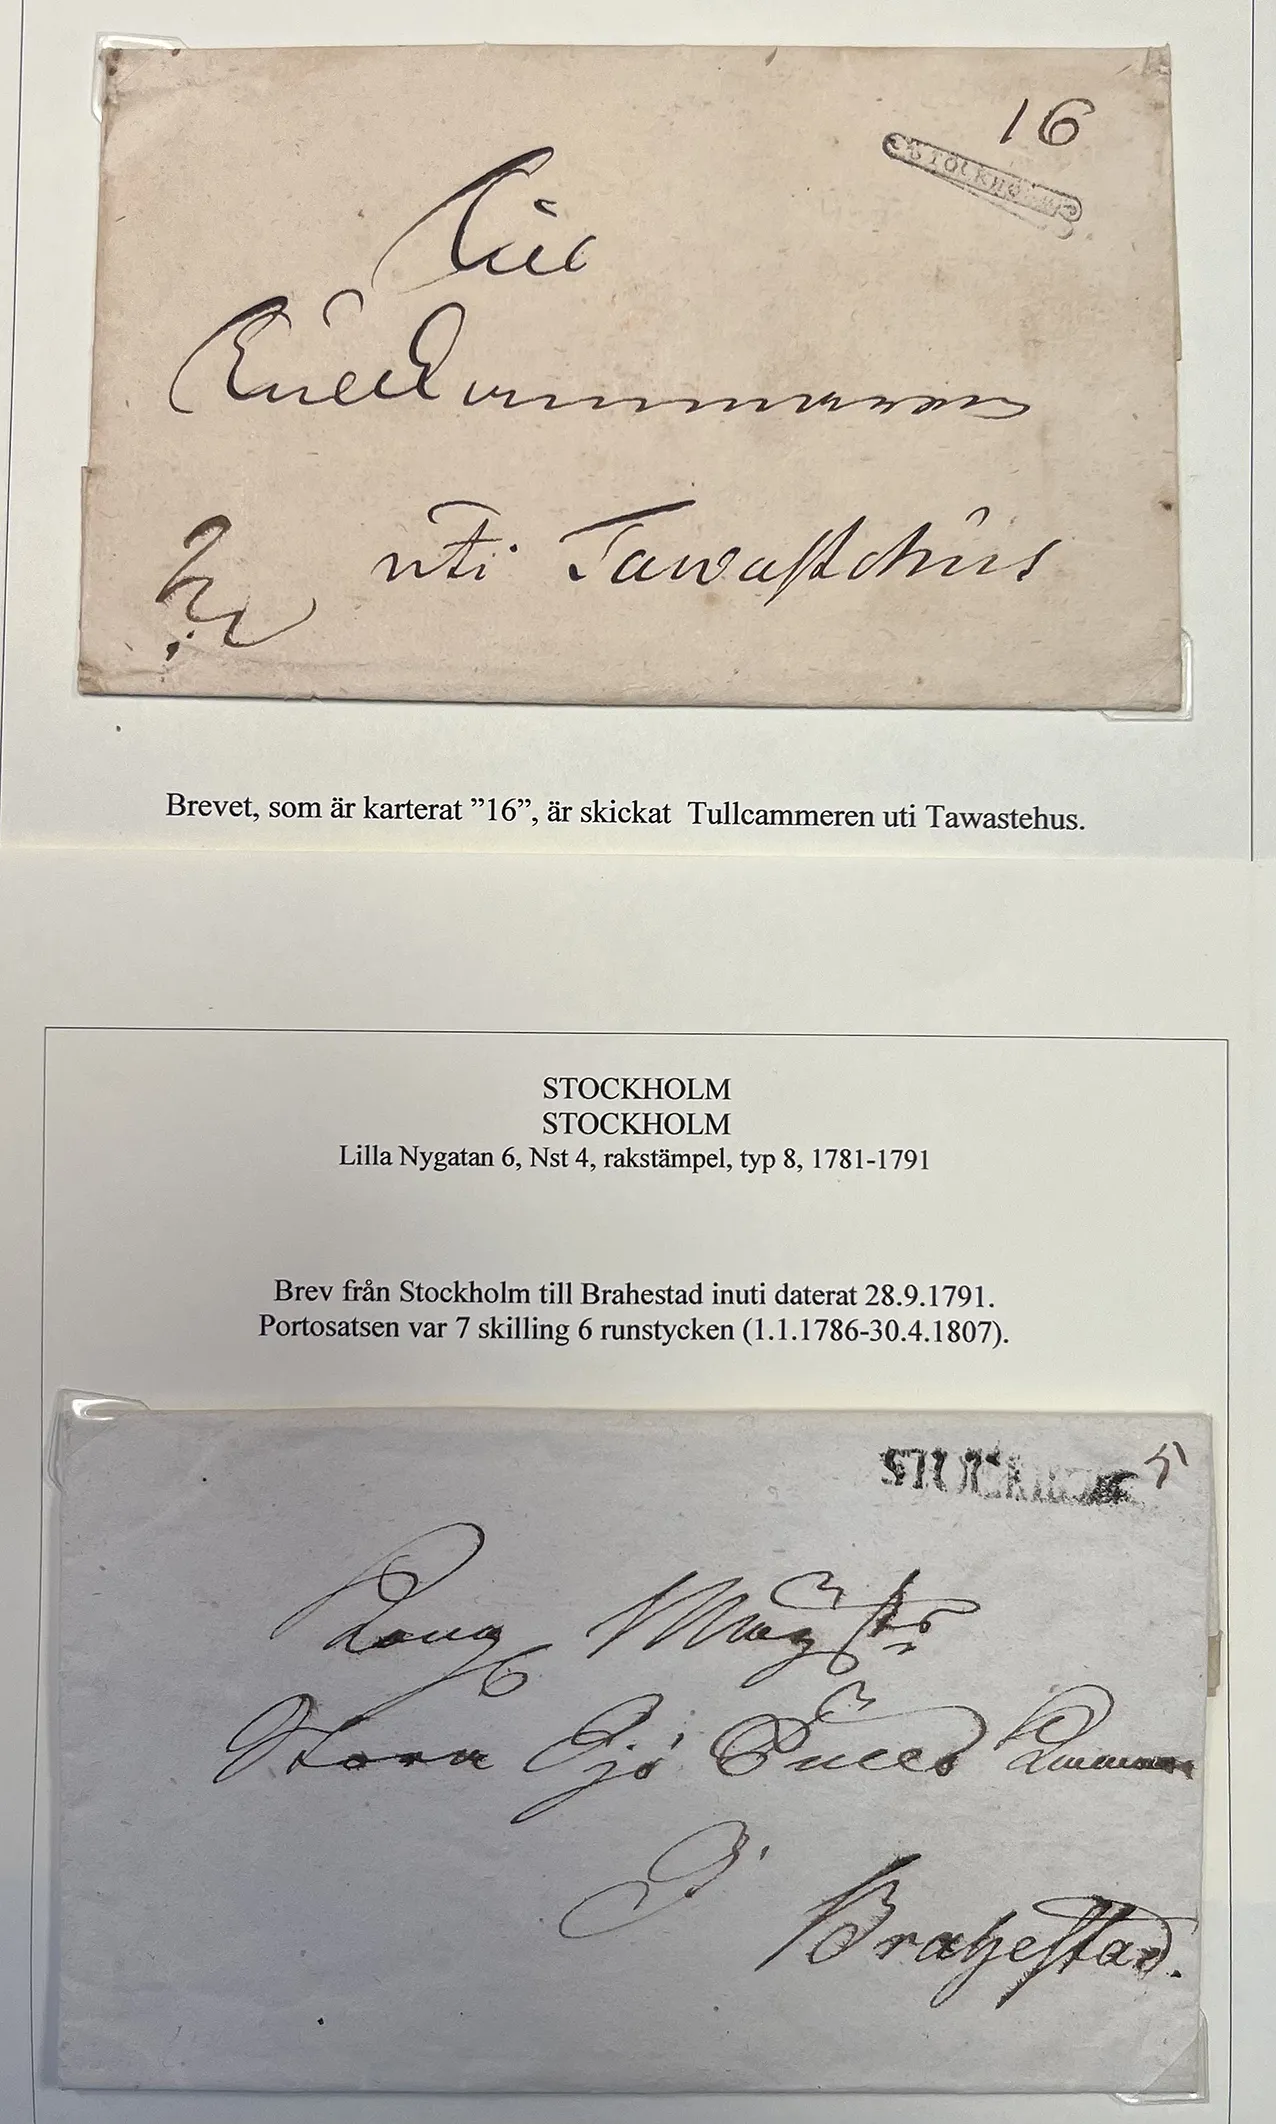 16
STOCKHOLM
Till
Tull Cammaren
uti Tawastehus
Brevet, som är karterat ”16”, är skickat Tullcammeren uti Tawastehus.
STOCKHOLM
STOCKHOLM
Lilla Nygatan 6, Nst 4, rakstämpel, typ 8, 1781-1791
Brev från Stockholm till Brahestad inuti daterat 28.9.1791.
Portosatsen var 7 skilling 6 runstycken (1.1.1786-30.4.1807).
STOCKHOLM
Kong Maÿts
Stora Sjö Tulls Cammar
I
Brahestad.